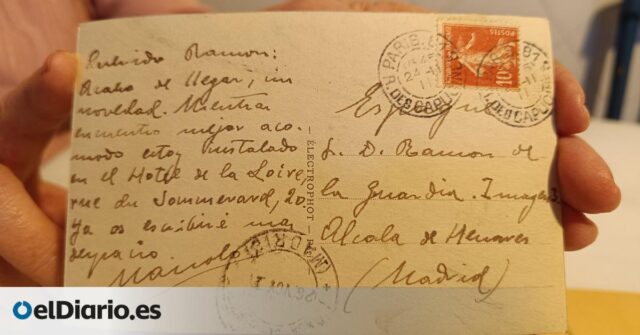 Querido Ramon:
Acabo de llegar, sin
novedad. Mientras
encuentro mejor aco-
modo estoy instalado
en el Hotel de la Loire,
rue du Sommerard, 20.
Ya os escribiré mas
despacio.
Manolo
ELECTROPHOT
PARIS
R. DES CAPUCINES
POSTES
10
Espagne
S. D. Ramon de
la Guardia. Imagen 3
Alcala de Henares
(Madrid)
MADRID
26 NOV
elDiario.es